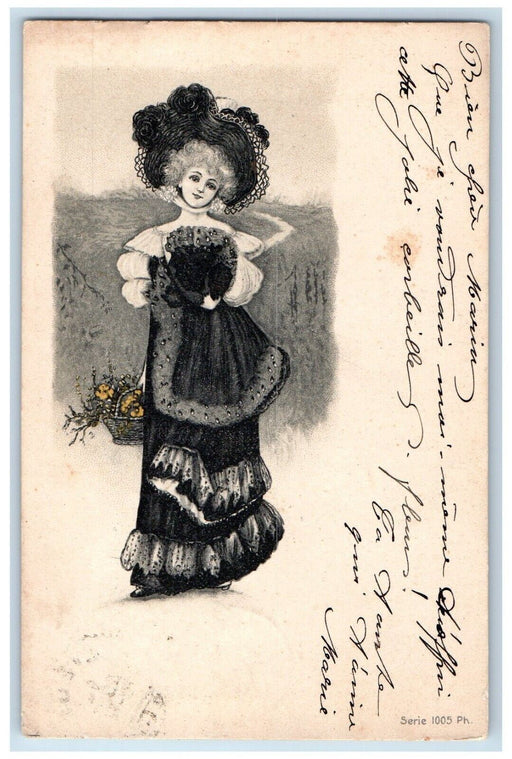 Bien chère Marie
Que je voudrais moi-même t'offrir
cette jolie corbeille de fleurs!
Ta Tante
qui t'aime
Marie
Serie 1005 Ph.